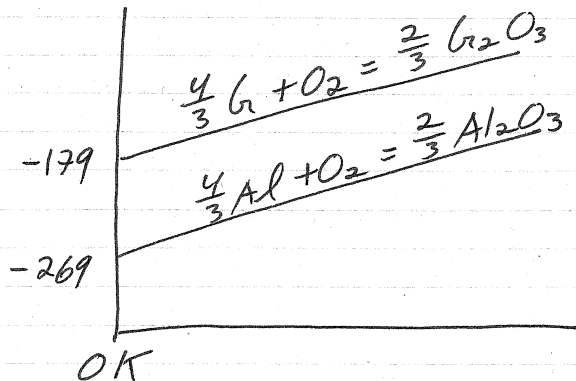 4/3 Cr + O₂ = 2/3 Cr₂O₃
-179
4/3 Al + O₂ = 2/3 Al₂O₃
-269
0K